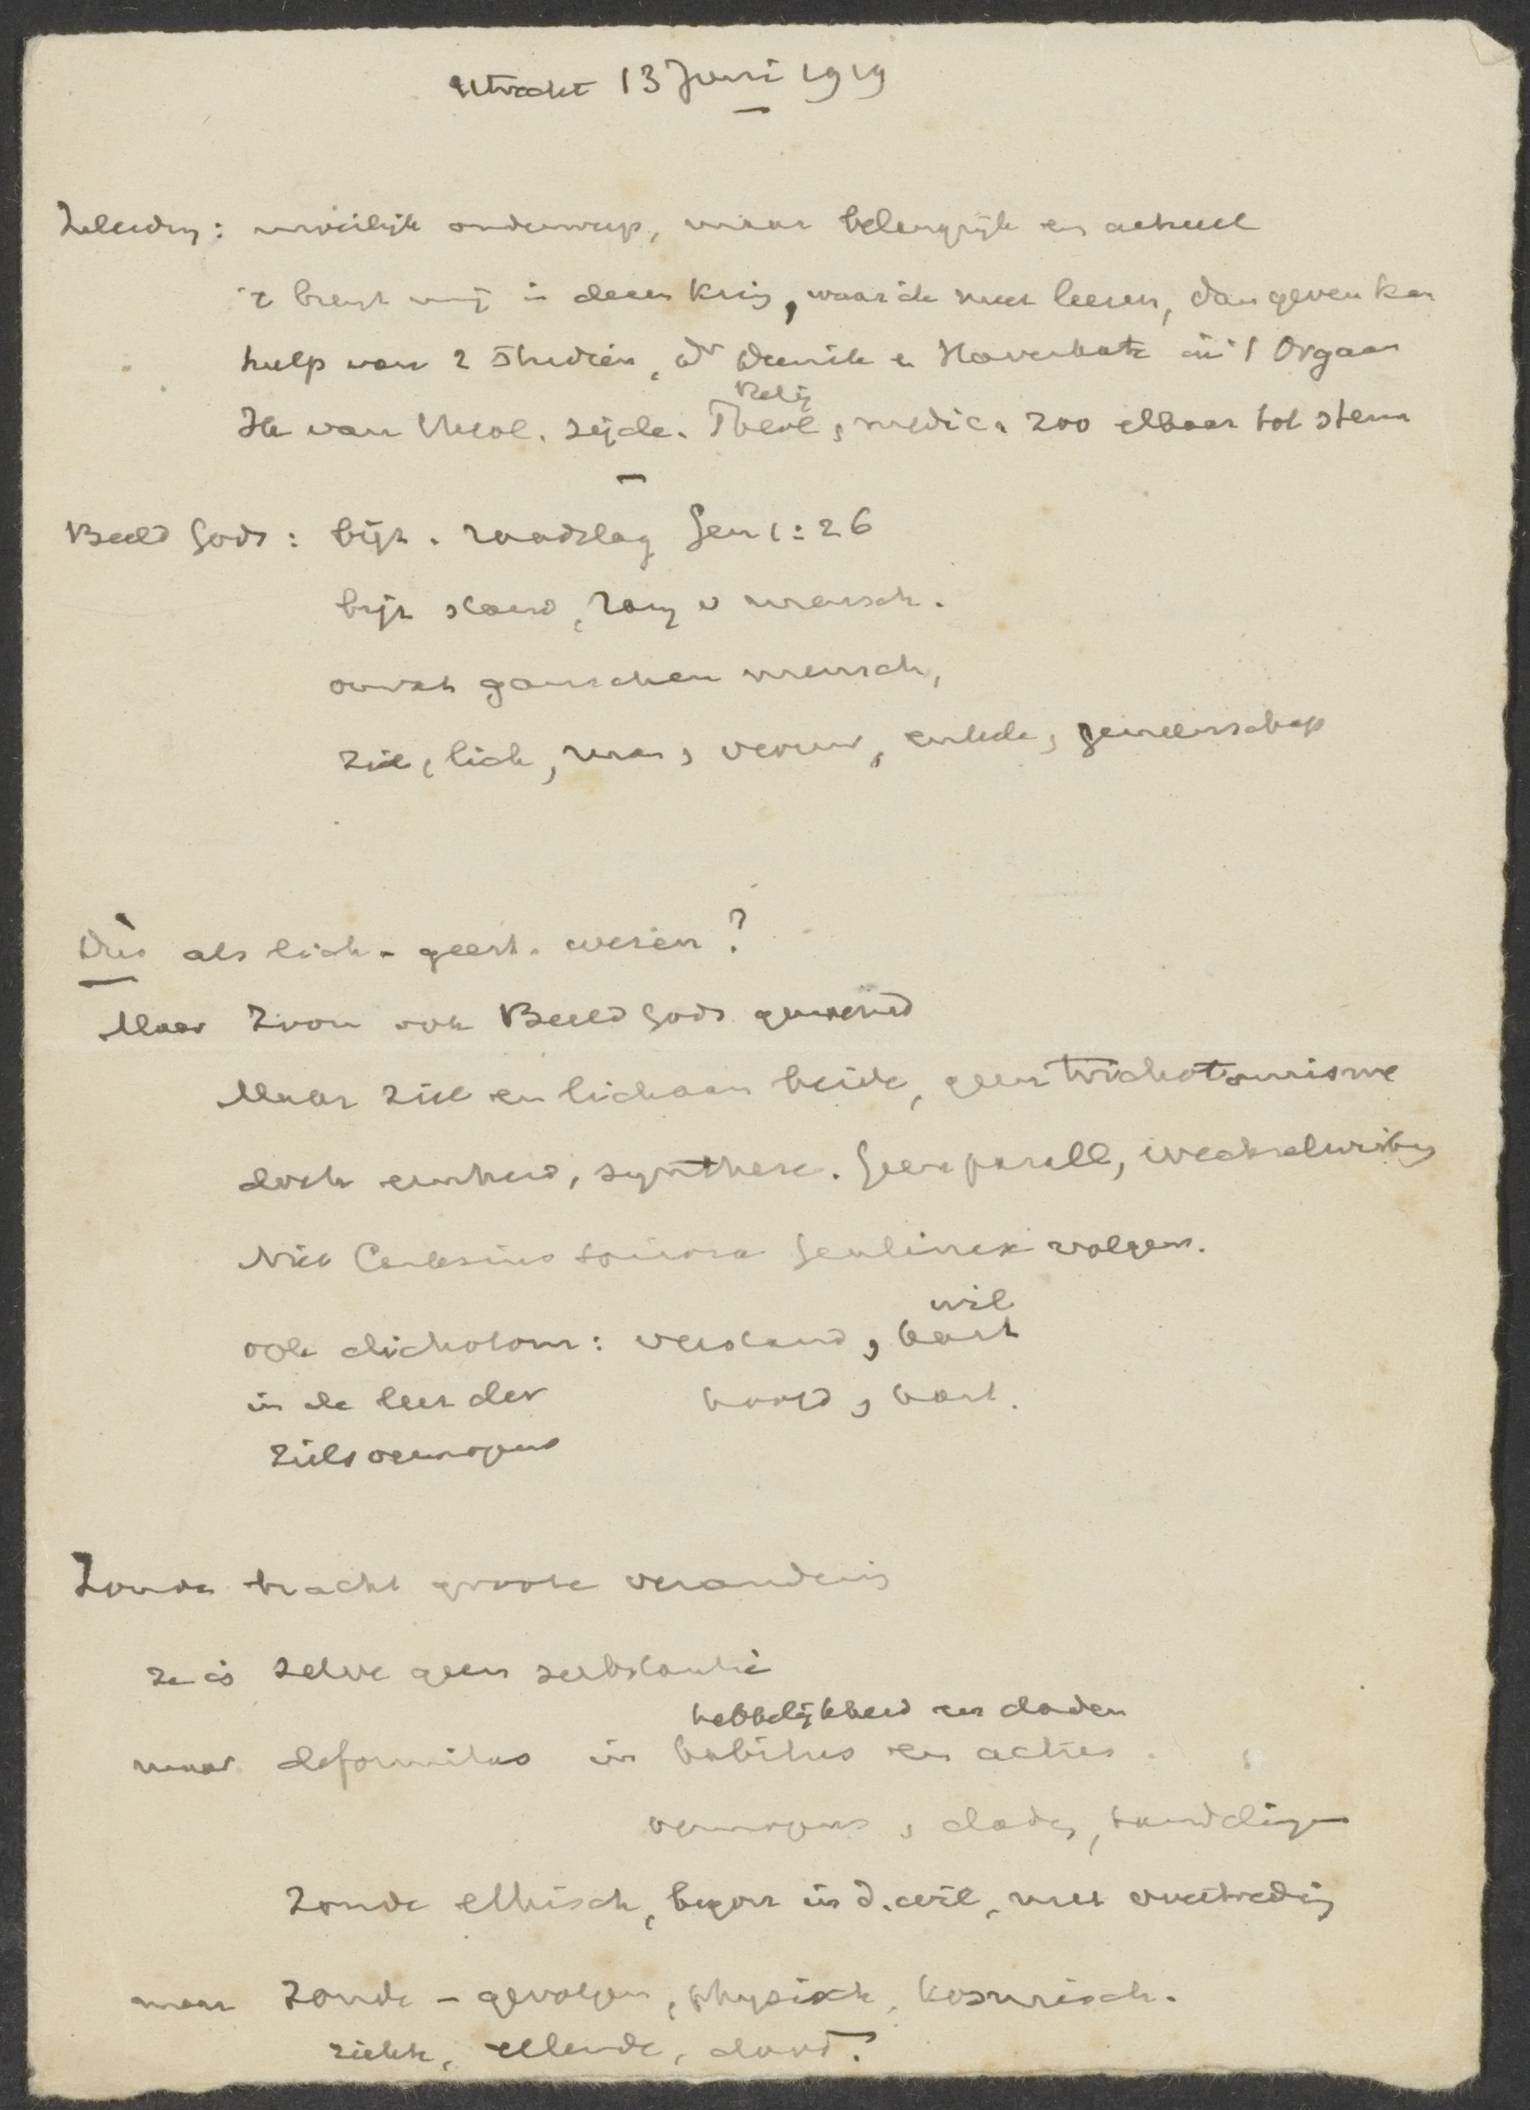 Utrecht 13 Juni 1919
Inleiding: moeilijk onderwerp, maar belangrijk en actueel
't brengt mij in dezen kring, waar ik meer leeren, dan geven kan
hulp van 2 studiën, Dr en in 't Orgaan
Ik van theol. zijde. Theol, medic. zoo elkaar tot steun
Relig
Beeld Gods: bijz. raadslag Gen 1:26
bijz stand, rang v mensch.
omvat ganschen mensch,
ziel, lich, man, vrouw, enkele, gemeenschap
Dus als lich. geest. wezen?
Maar Zoon ook Beeld Gods genoemd
Maar ziel en lichaam beide, geen trichotomisme
doch eenheid, synthese. Geen parall, wechselwirkung
Niet Cartesius Spinoza Geulincx volgen.
wil
ook dichotom: verstand, hart
in de leer der hoofd, hart.
zielsvermogens
Zonde bracht groote verandering
ze is zelve geen substantie
hebbelijkheid en daden
maar deformitas in habitus en acties.
vermogens, daden, handelingen
Zonde ethisch, begon in d. wil, met overtreding
maar zonde - gevolgen, physisch, kosmisch.
ziekte, ellende, dood.